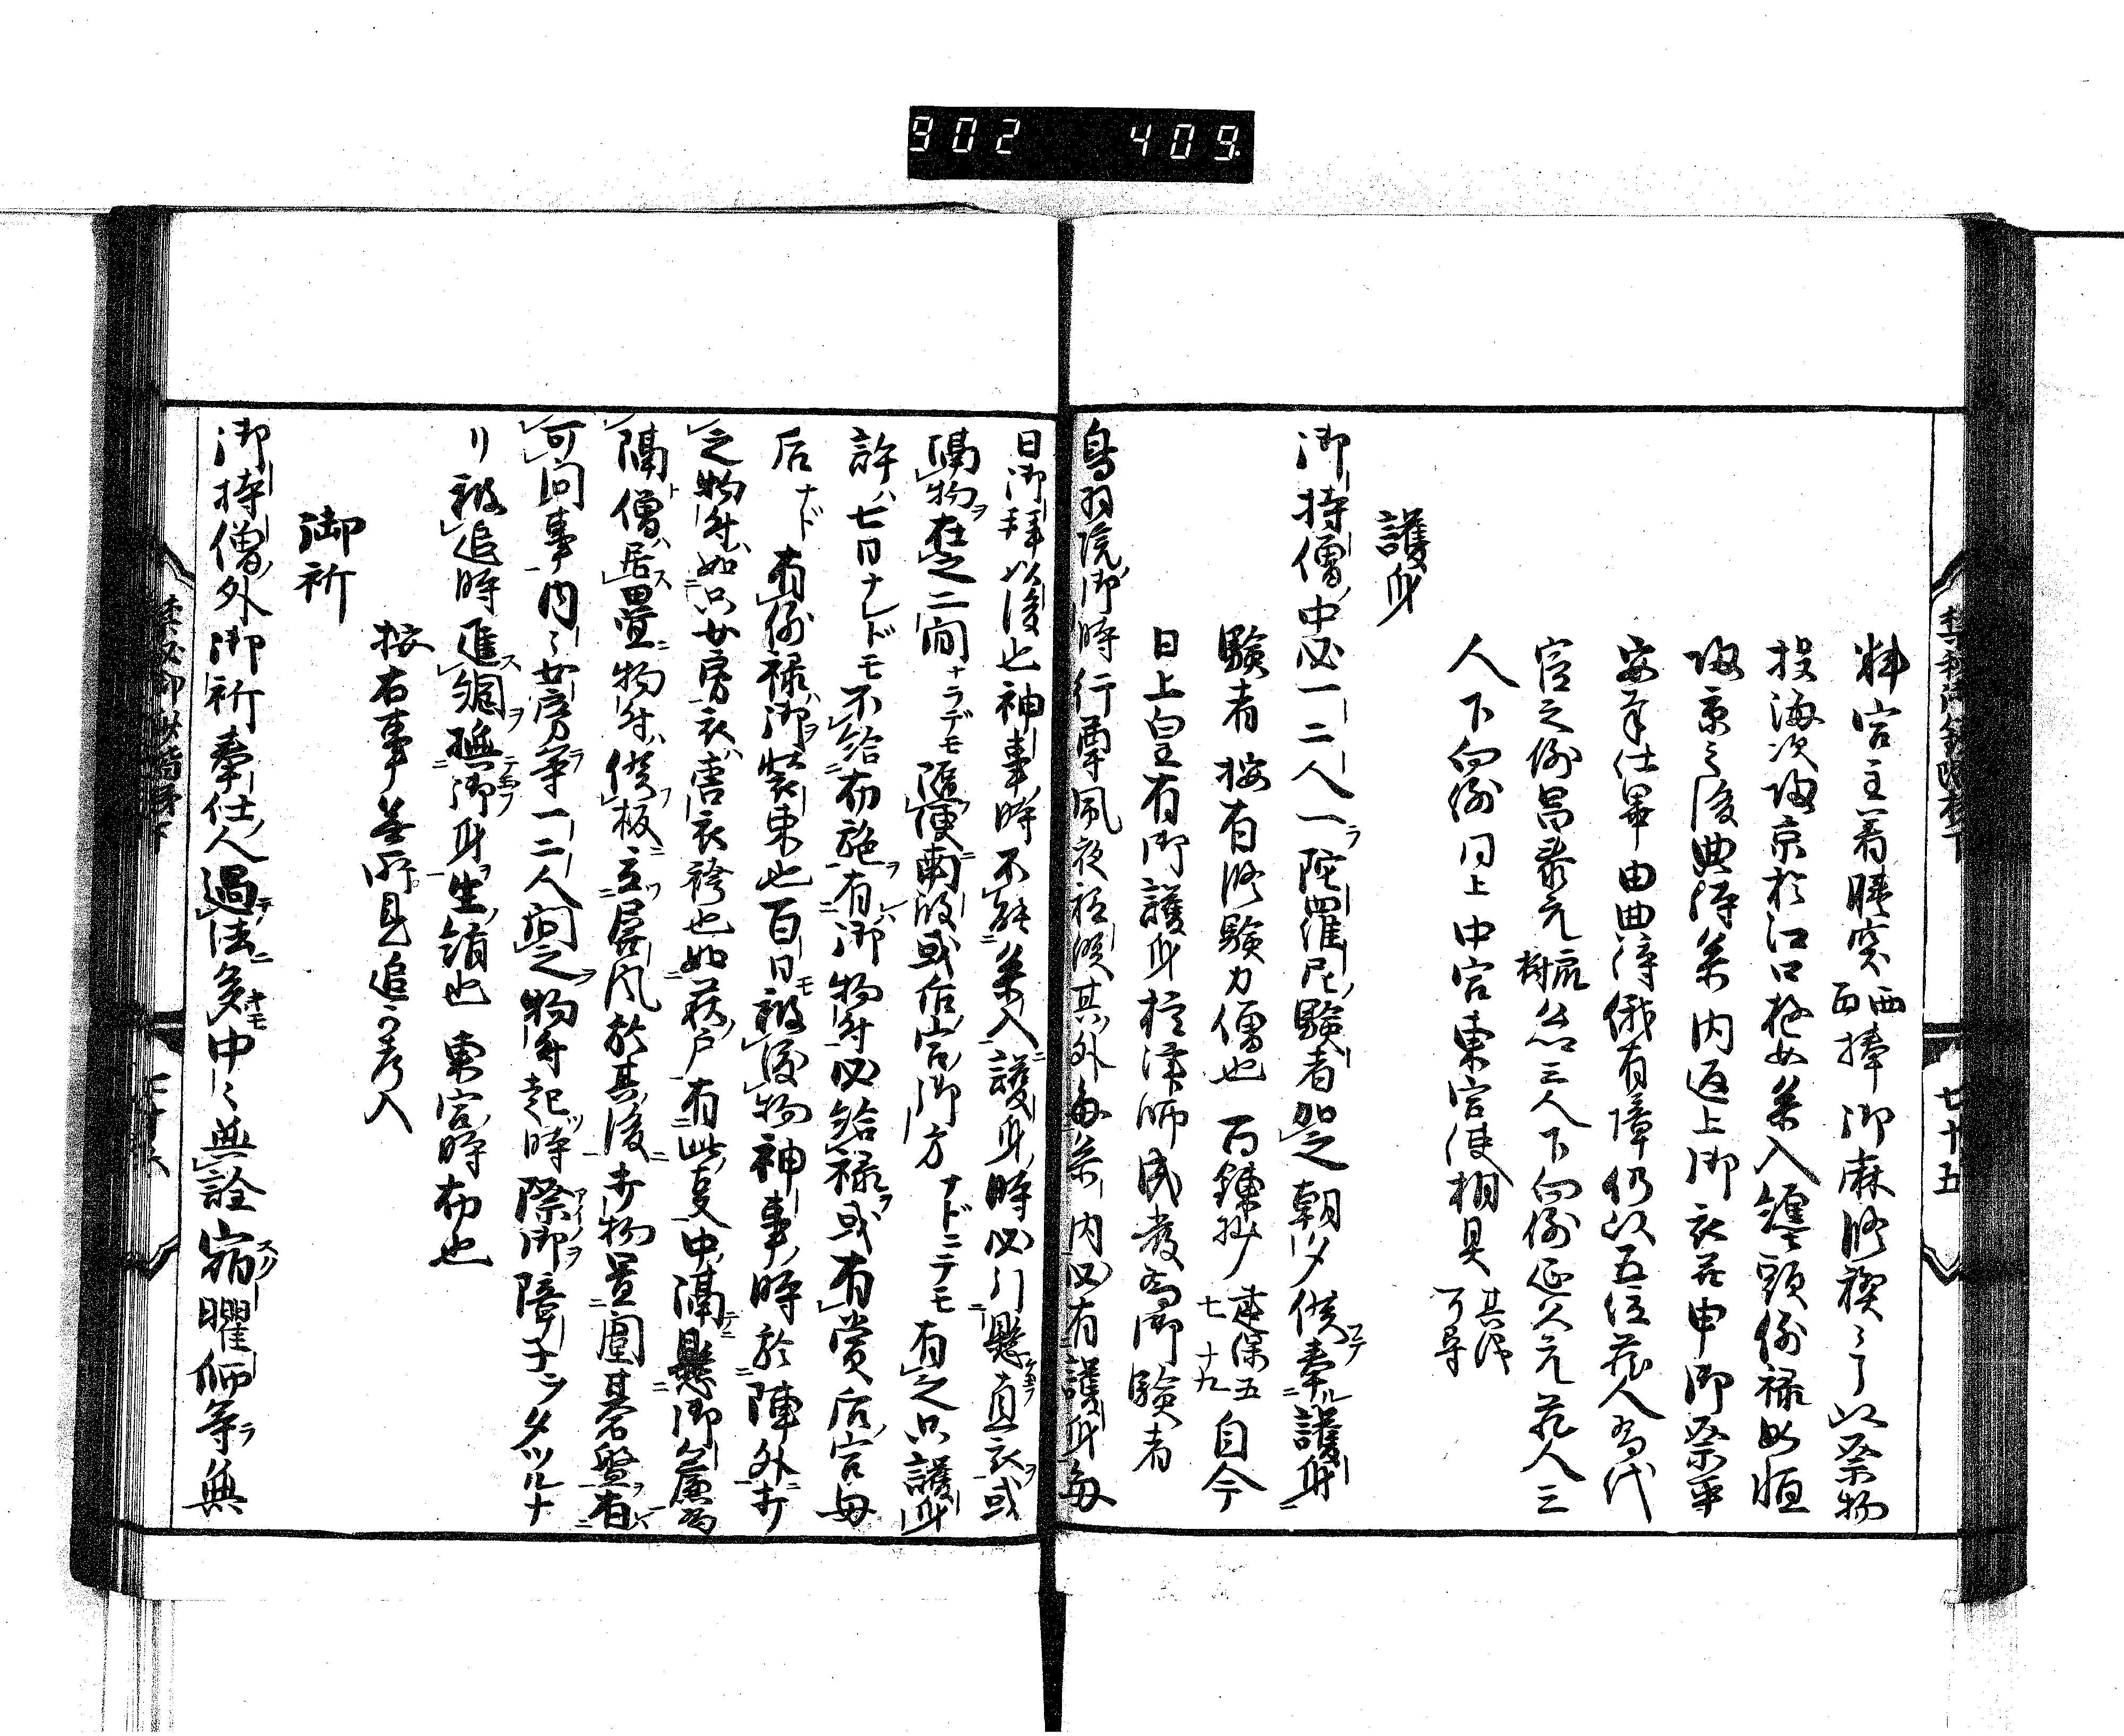 902 409
七十五
料宮主着膝突西面捧御麻修禊了以祭物
投海次帰京於江口遊女参入纏頭例禄如恒
帰京之後典侍参内返上御衣并申御祭平
安奉仕畢由典侍俄有障仍以五位蔵人為代
官之例昌泰元
三人下向例延久元蔵人三
人下向例同上中宮東宮使相具
護身
御持僧中必一二人一陀羅尼験者加之朝夕候奉護身
験者按有修験力僧也百錬抄建保五七十九自今
日上皇有御護身権律師成
為御験者
鳥羽院御時行尊夙夜祗候其外毎参内必有護身毎
日御拝以後也神事時不能参入護身時必引懸直衣或
隔物在之二間ナラデモ随便南殿或后宮御方ナドニテモ有之只護身
許ハ七日ナレドモ不給布施有御物付必給禄或有賞后宮毎
后ナド有例禄御装束也百日被後物神事時於陣外打
之物付如只女房衣唐衣袴也如萩戸有此
中隔懸御簾為
隔僧居畳物付候板立屏風於其後打物置囲碁盤有
可問事内々女房等一二人問之物付起時際御障子ヲタツルナ
リ被追時進
撫御身生絹也東宮時布也
按右事無所見追可考入
御祈
御持僧外御祈奉仕人過法多中々無詮宿曜師等無